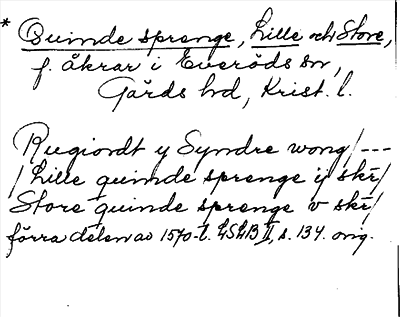 * Quinde sprenge, Lille och Store,
f. åkrar i Everöds sn,
Gärds hd, Krist. l.
Rugiordt y Syndre wong/---
/Lille quinde sprenge ij skr/
Store quinde sprenge v skr/
förra delen av 1570-t. LSLB II, s. 134. orig.